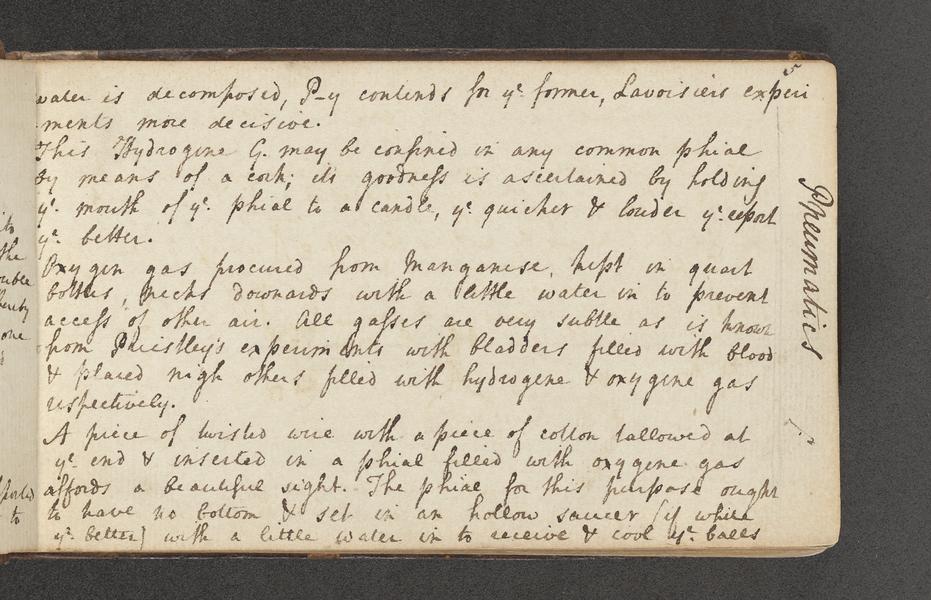 5
water is decomposed, P-y contends for ye. former, Lavoisiers experi
-ments more decisive.
This Hydrogine G. may be confined in any common phial
by means of a cork; its goodness is ascertained by holding
ye. mouth of ye. phial to a candle, ye. quicker & louder ye. report
ye. better.
Oxygen gas procured from Manganese, kept in quart
bottles, necks downards with a little water in to prevent
access of other air. All gasses are very subtle as is known
from Priestley's experiments with bladders filled with blood
& placed nigh others filled with hydrogine & oxygine gas
respectively.
A piece of twisted wire with a piece of cotton tallowed at
ye. end & inserted in a phial filled with oxygene gas
affords a beautiful sight. The phial for this purpose ought
to have no bottom & set in an hollow saucer (if white
ye. better) with a little water in to receive & cool ye. balls
Pneumatics
to
the
hereby
one
to